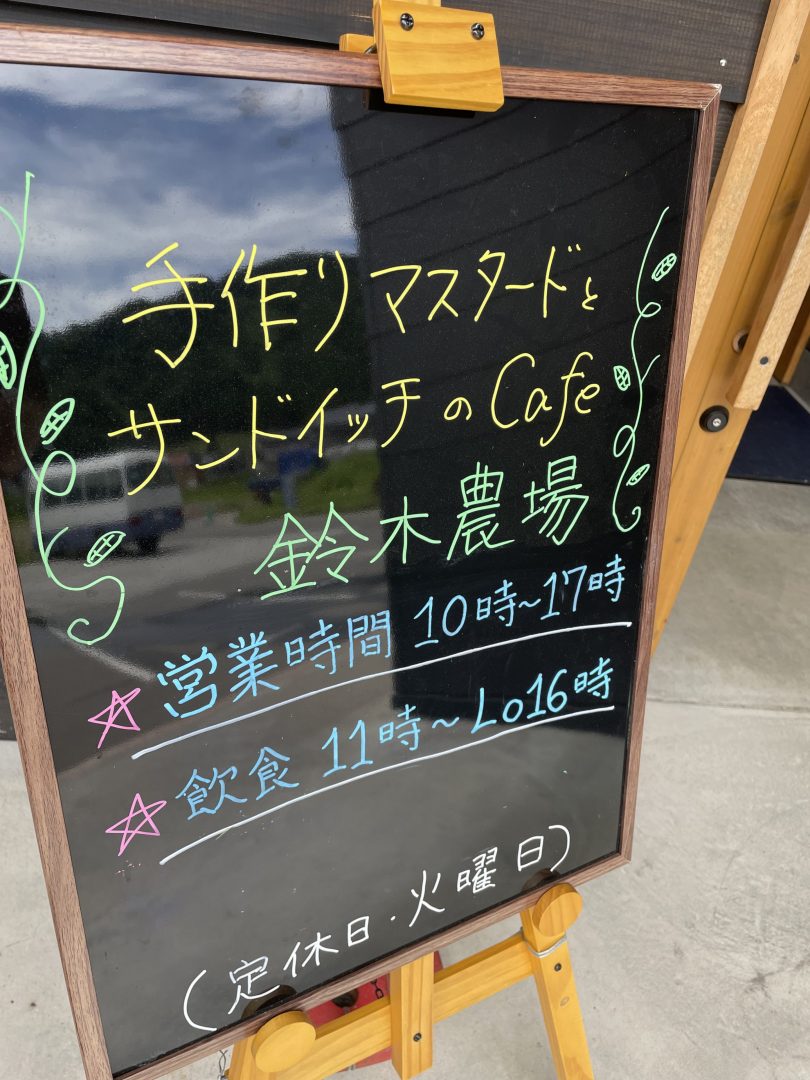 手作りマスタードと
サンドイッチのCafe
鈴木農場
☆営業時間 10時~17時
☆飲食 11時~Lo16時
(定休日・火曜日)